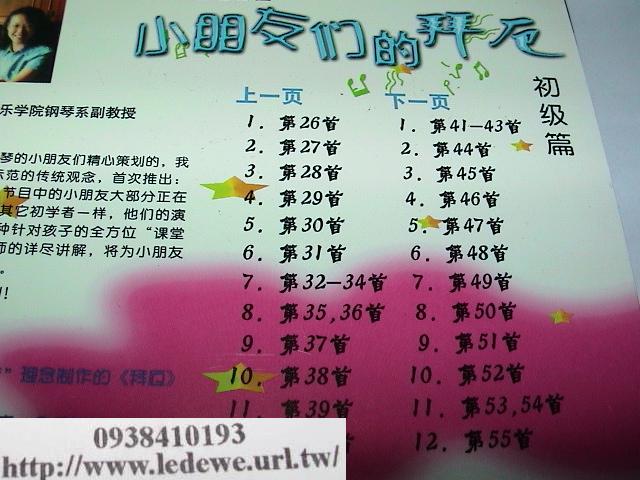 小朋友们的拜厄
初级篇
乐学院钢琴系副教授
琴的小朋友们精心策划的，我
示范的传统观念，首次推出：
节目中的小朋友大部分正在
其它初学者一样，他们的演
种针对孩子的全方位“课堂
师的详尽讲解，将为小朋友
。
!
”理念制作的《拜厄》
上一页
1. 第26首
2. 第27首
3. 第28首
4. 第29首
5. 第30首
6. 第31首
7. 第32—34首
8. 第35,36首
9. 第37首
10. 第38首
11. 第39首
首
下一页
1. 第41—43首
2. 第44首
3. 第45首
4. 第46首
5. 第47首
6. 第48首
7. 第49首
8. 第50首
9. 第51首
10. 第52首
11. 第53,54首
12. 第55首
0938410193
http://www.ledewe.url.tw/